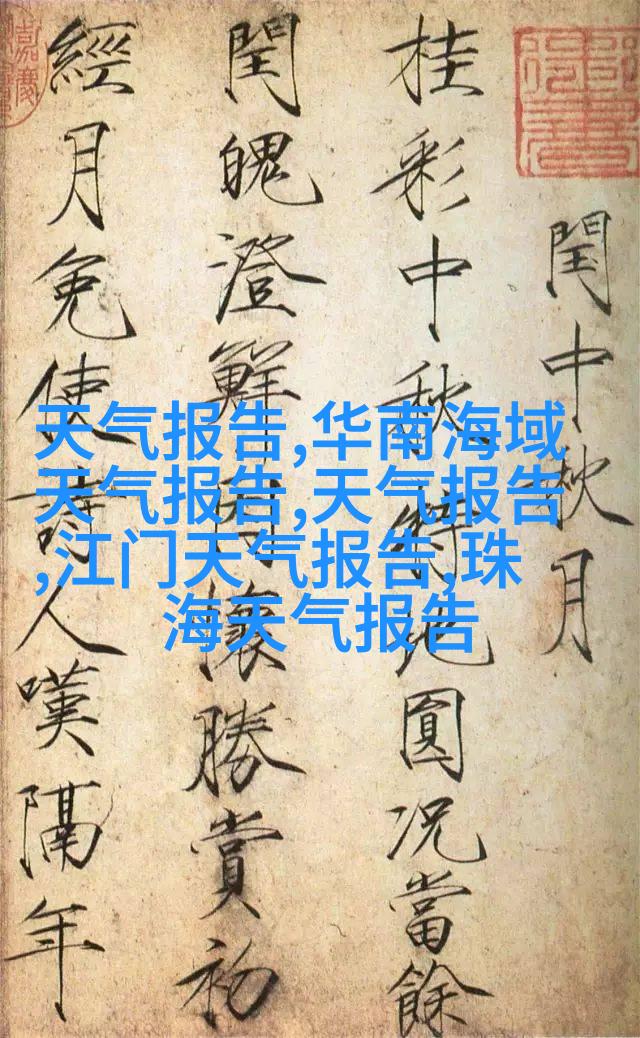 閏中秋月
桂彩中秋特地圓况當餘
閏魄澄鮮因懷勝賞初
經月免使詩人嘆隔年
天气报告,华南海域
天气报告,天气报告
,江门天气报告,珠
海天气报告